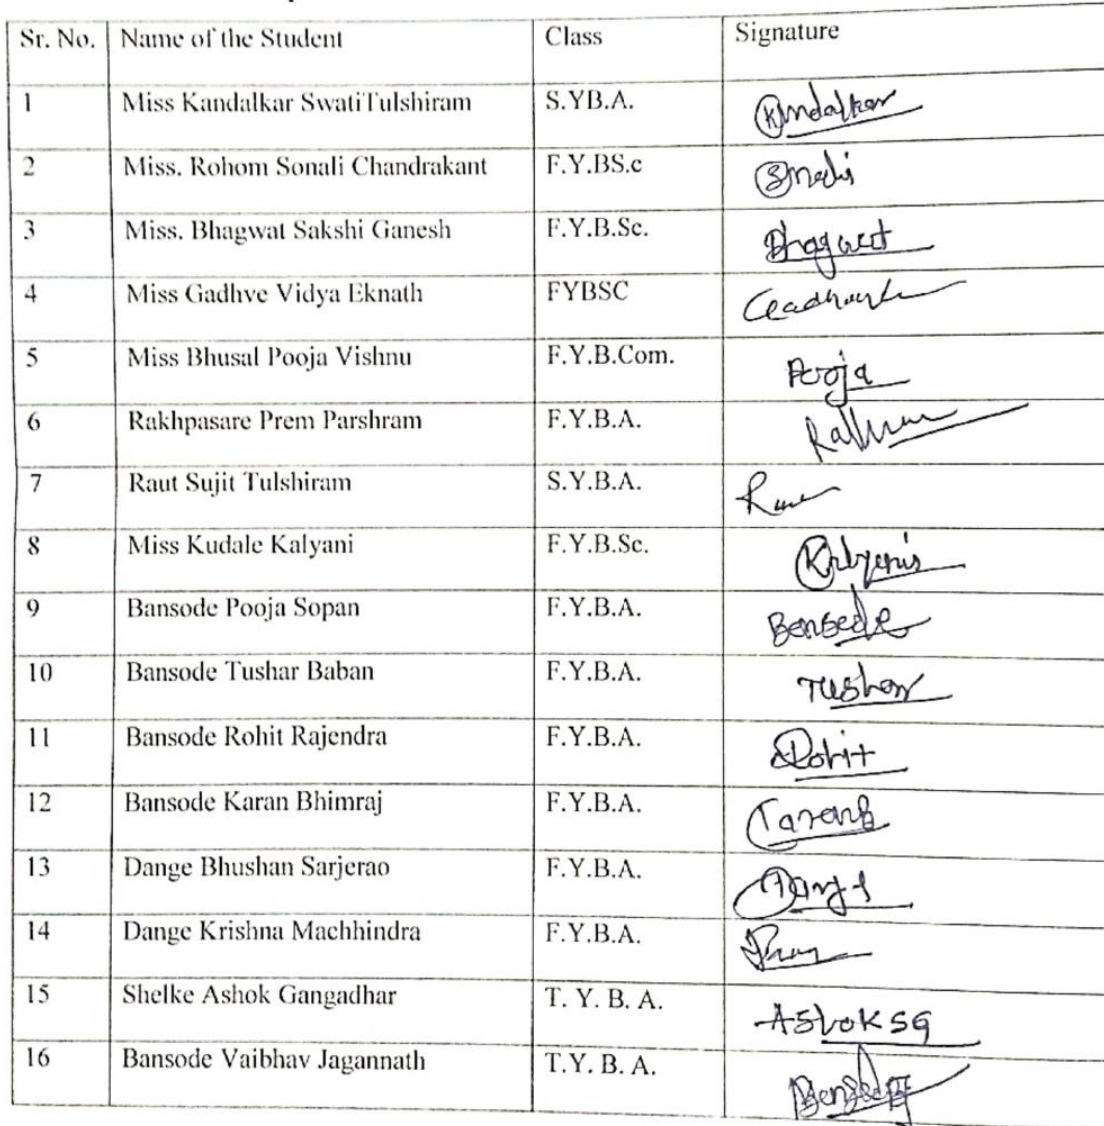 Sr. No. Name of the Student Class Signature
1 Miss Kandalkar SwatiTulshiram S.YB.A. Kandalkar
2 Miss. Rohom Sonali Chandrakant F.Y.BS.c
3 Miss. Bhagwat Sakshi Ganesh F.Y.B.Sc. Bhagwat
4 Miss Gadhve Vidya Eknath FYBSC
5 Miss Bhusal Pooja Vishnu F.Y.B.Com. Pooja
6 Rakhpasare Prem Parshram F.Y.B.A.
7 Raut Sujit Tulshiram S.Y.B.A.
8 Miss Kudale Kalyani F.Y.B.Sc.
9 Bansode Pooja Sopan F.Y.B.A. Bansode
10 Bansode Tushar Baban F.Y.B.A. Tushar
11 Bansode Rohit Rajendra F.Y.B.A. Rohit
12 Bansode Karan Bhimraj F.Y.B.A.
13 Dange Bhushan Sarjerao F.Y.B.A.
14 Dange Krishna Machhindra F.Y.B.A.
15 Shelke Ashok Gangadhar T. Y. B. A. Ashok SG
16 Bansode Vaibhav Jagannath T.Y. B. A.